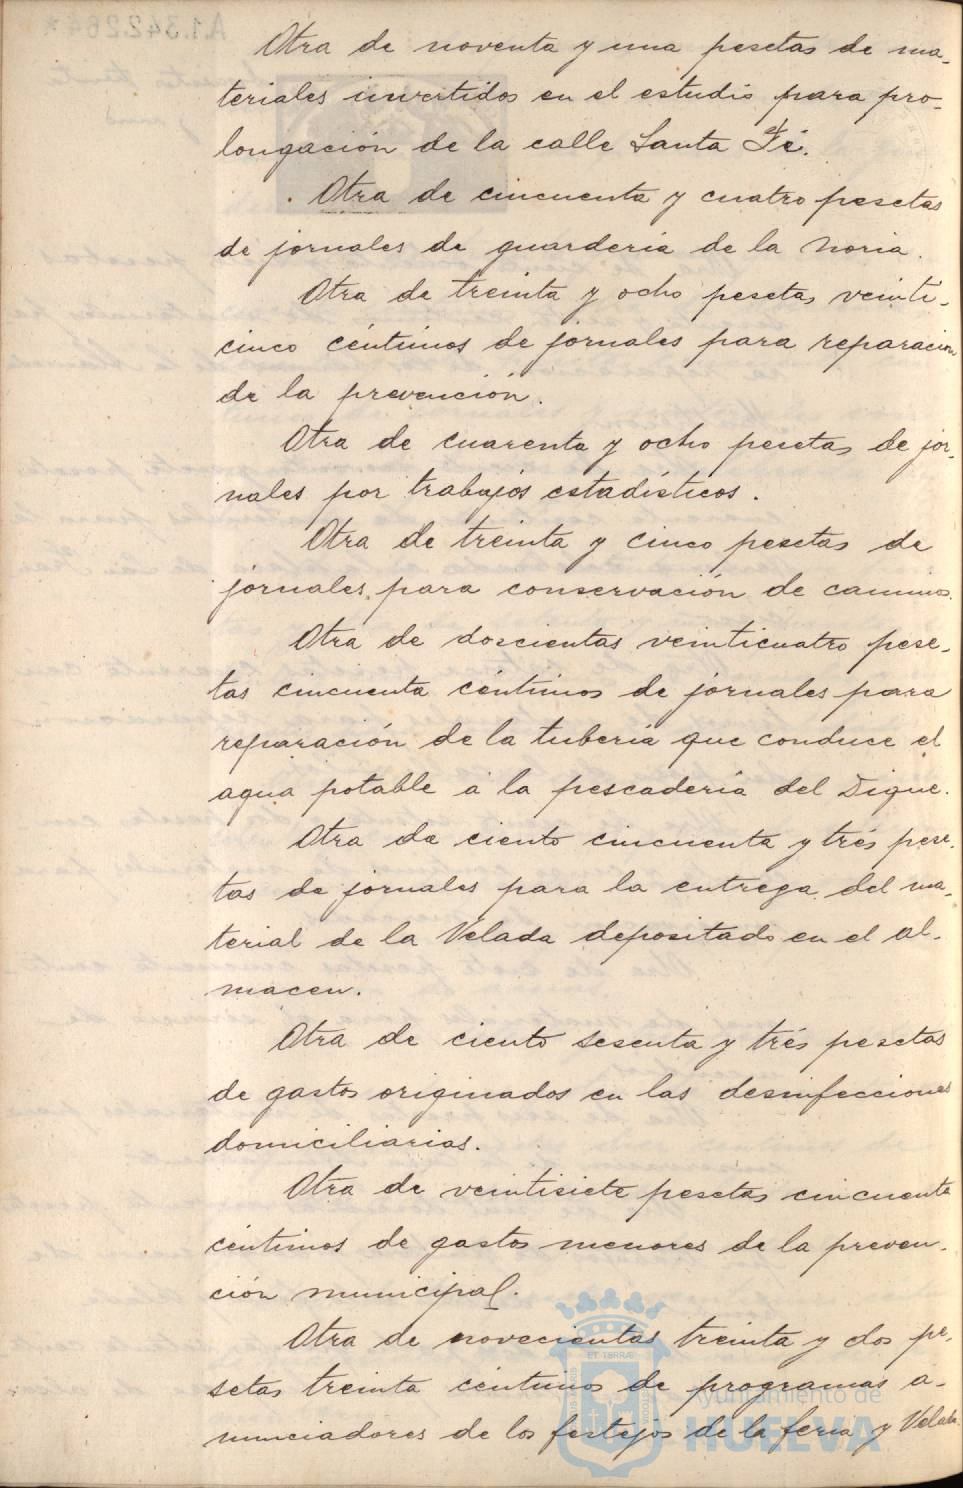 Otra de noventa y una pesetas de ma-
teriales invertidos en el estudio para pro-
longación de la calle Santa Fé.
Otra de cincuenta y cuatro pesetas
de jornales de guardería de la Noria.
Otra de treinta y ocho pesetas veinti-
cinco céntimos de jornales para reparación
de la prevención.
Otra de cuarenta y ocho pesetas de jor-
nales por trabajos estadísticos.
Otra de treinta y cinco pesetas de
jornales para conservación de caminos.
Otra de doscientas veinticuatro pese-
tas cincuenta céntimos de jornales para
reparación de la tubería que conduce el
agua potable á la pescadería del Dique.
Otra de ciento cincuenta y trés pese-
tas de jornales para la entrega del ma-
terial de la Velada depositado en el al-
macen.
Otra de ciento sesenta y trés pesetas
de gastos originados en las desinfecciones
domiciliarias.
Otra de veintisiete pesetas cincuenta
céntimos de gastos menores de la preven-
ción municipal.
Otra de novecientas treinta y dos pe-
setas treinta céntimos de programas a-
nunciadores de los festejos de la feria y Velada
Ayuntamiento de
HUELVA
ET TERRÆ
A1.342.264*